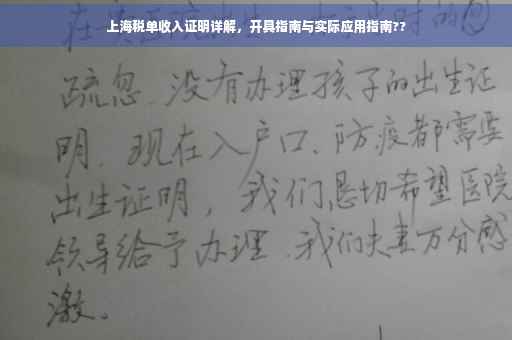 上海税单收入证明详解，开具指南与实际应用指南??
疏忽、没有办理孩子的出生证
明、现在入户口、防疫都需要
出生证明，我们恳切希望医院
领导给予办理、我们夫妻万分感
激。